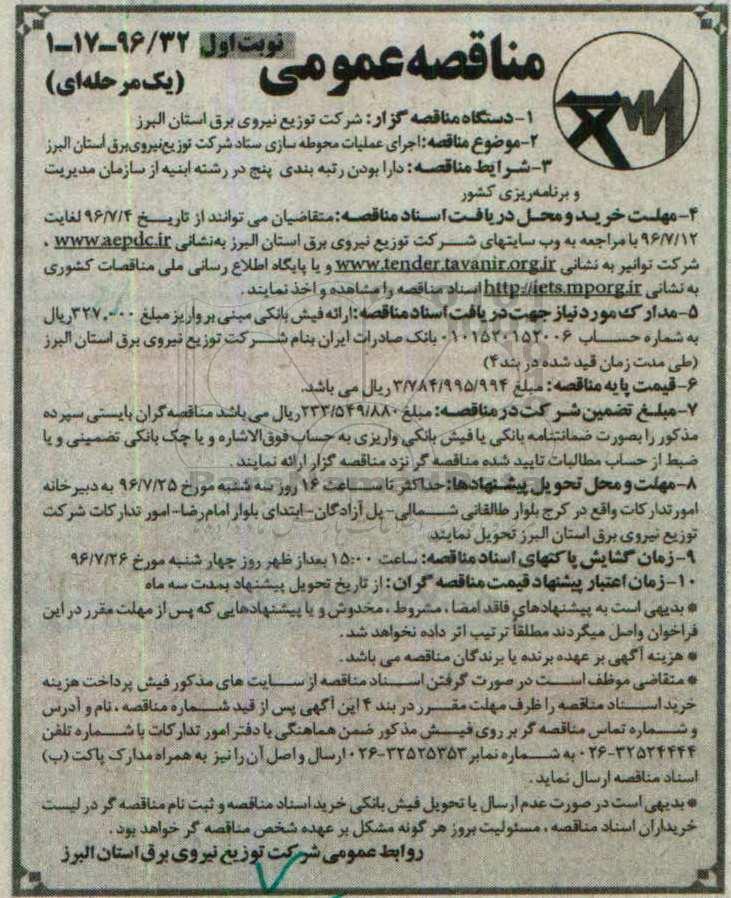 مناقصه عمومی نوبت اول ۹۶/۳۲–۱۷–۱
(یک مرحله‌ای)
۱-دستگاه مناقصه گزار: شرکت توزیع نیروی برق استان البرز
۲-موضوع مناقصه:اجرای عملیات محوطه سازی ستاد شرکت توزیع نیروی‌برق استان البرز
۳-شرایط مناقصه: دارا بودن رتبه بندی پنج در رشته ابنیه از سازمان مدیریت
و برنامه‌ریزی کشور
۴-مهلت خرید و محل دریافت اسناد مناقصه: متقاضیان می توانند از تاریخ ۹۶/۷/۴ لغایت
۹۶/۷/۱۲ با مراجعه به وب سایتهای شرکت توزیع نیروی برق استان البرز به‌نشانی www.aepdc.ir ،
شرکت توانیر به نشانی www.tender.tavanir.org.ir و یا پایگاه اطلاع رسانی ملی مناقصات کشوری
به نشانی http://iets.mporg.ir اسناد مناقصه را مشاهده و اخذ نمایند .
۵-مدارک مورد نیاز جهت دریافت اسناد مناقصه: ارائه فیش بانکی مبنی بر واریز مبلغ ۳۲۷,۰۰۰ریال
به شماره حساب ۰۱۰۱۵۲۰۱۵۲۰۰۶ بانک صادرات ایران بنام شرکت توزیع نیروی برق استان البرز
(طی مدت زمان قید شده در بند۴)
۶-قیمت پایه مناقصه: مبلغ ۳/۷۸۴/۹۹۵/۹۹۴ ریال می باشد.
۷-مبلغ تضمین شرکت در مناقصه: مبلغ ۲۳۳/۵۴۹/۸۸۰ریال می باشد مناقصه‌گران بایستی سپرده
مذکور را بصورت ضمانتنامه بانکی یا فیش بانکی واریزی به حساب فوق‌الاشاره و یا چک بانکی تضمینی و یا
ضبط از حساب مطالبات تایید شده مناقصه گر نزد مناقصه گزار ارائه نمایند .
۸-مهلت و محل تحویل پیشنهادها: حداکثر تا ساعت ۱۶ روز سه شنبه مورخ ۹۶/۷/۲۵ به دبیرخانه
امور تدارکات واقع در کرج بلوار طالقانی شمالی-پل آزادگان-ابتدای بلوار امام رضا-امور تدارکات شرکت
توزیع نیروی برق استان البرز تحویل نمایند
۹-زمان گشایش پاکتهای اسناد مناقصه: ساعت ۱۵:۰۰ بعداز ظهر روز چهار شنبه مورخ ۹۶/۷/۲۶
۱۰-زمان اعتبار پیشنهاد قیمت مناقصه گران: از تاریخ تحویل پیشنهاد بمدت سه ماه
* بدیهی است به پیشنهادهای فاقد امضا ، مشروط ، مخدوش و یا پیشنهادهایی که پس از مهلت مقرر در این
فراخوان واصل میگردند مطلقاً ترتیب اثر داده نخواهد شد .
* هزینه آگهی بر عهده برنده یا برندگان مناقصه می باشد .
* متقاضی موظف است در صورت گرفتن اسناد مناقصه از سایت های مذکور فیش پرداخت هزینه
خرید اسناد مناقصه را ظرف مهلت مقرر در بند ۴ این آگهی پس از قید شماره مناقصه ، نام و آدرس
و شماره تماس مناقصه گر بر روی فیش مذکور ضمن هماهنگی با دفتر امور تدارکات با شماره تلفن
۰۲۶-۳۲۵۲۴۴۴۴ به شماره نمابر ۰۲۶-۳۲۵۲۵۳۵۳ ارسال و اصل آن را نیز به همراه مدارک پاکت (ب)
اسناد مناقصه ارسال نماید .
* بدیهی است در صورت عدم ارسال یا تحویل فیش بانکی خرید اسناد مناقصه و ثبت نام مناقصه گر در لیست
خریداران اسناد مناقصه ، مسئولیت بروز هر گونه مشکل بر عهده شخص مناقصه گر خواهد بود .
روابط عمومی شرکت توزیع نیروی برق استان البرز